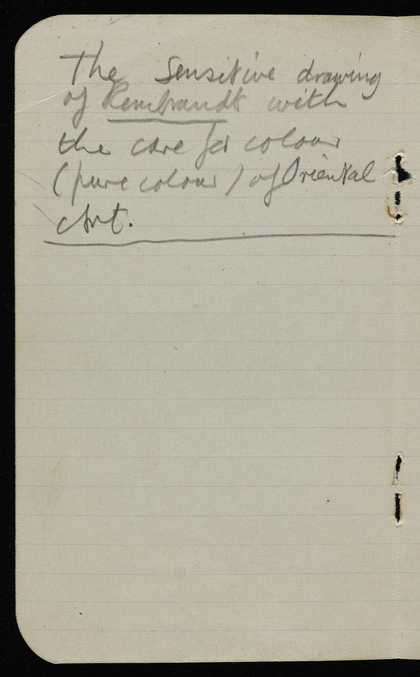 The Sensitive drawing
of Rembrandt with
the care for colour
(pure colour) of Oriental
Art.